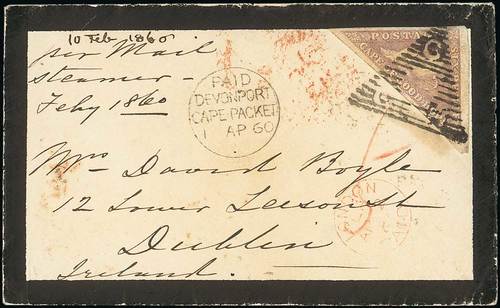 10 Feb 1860
per Mail
steamer –
Feby 1860
PAID
DEVONPORT
CAPE PACKET
1 AP 60
POSTA
CAPE
Mrs David Boyle
12 Lower Leeson St
Dublin
Ireland.